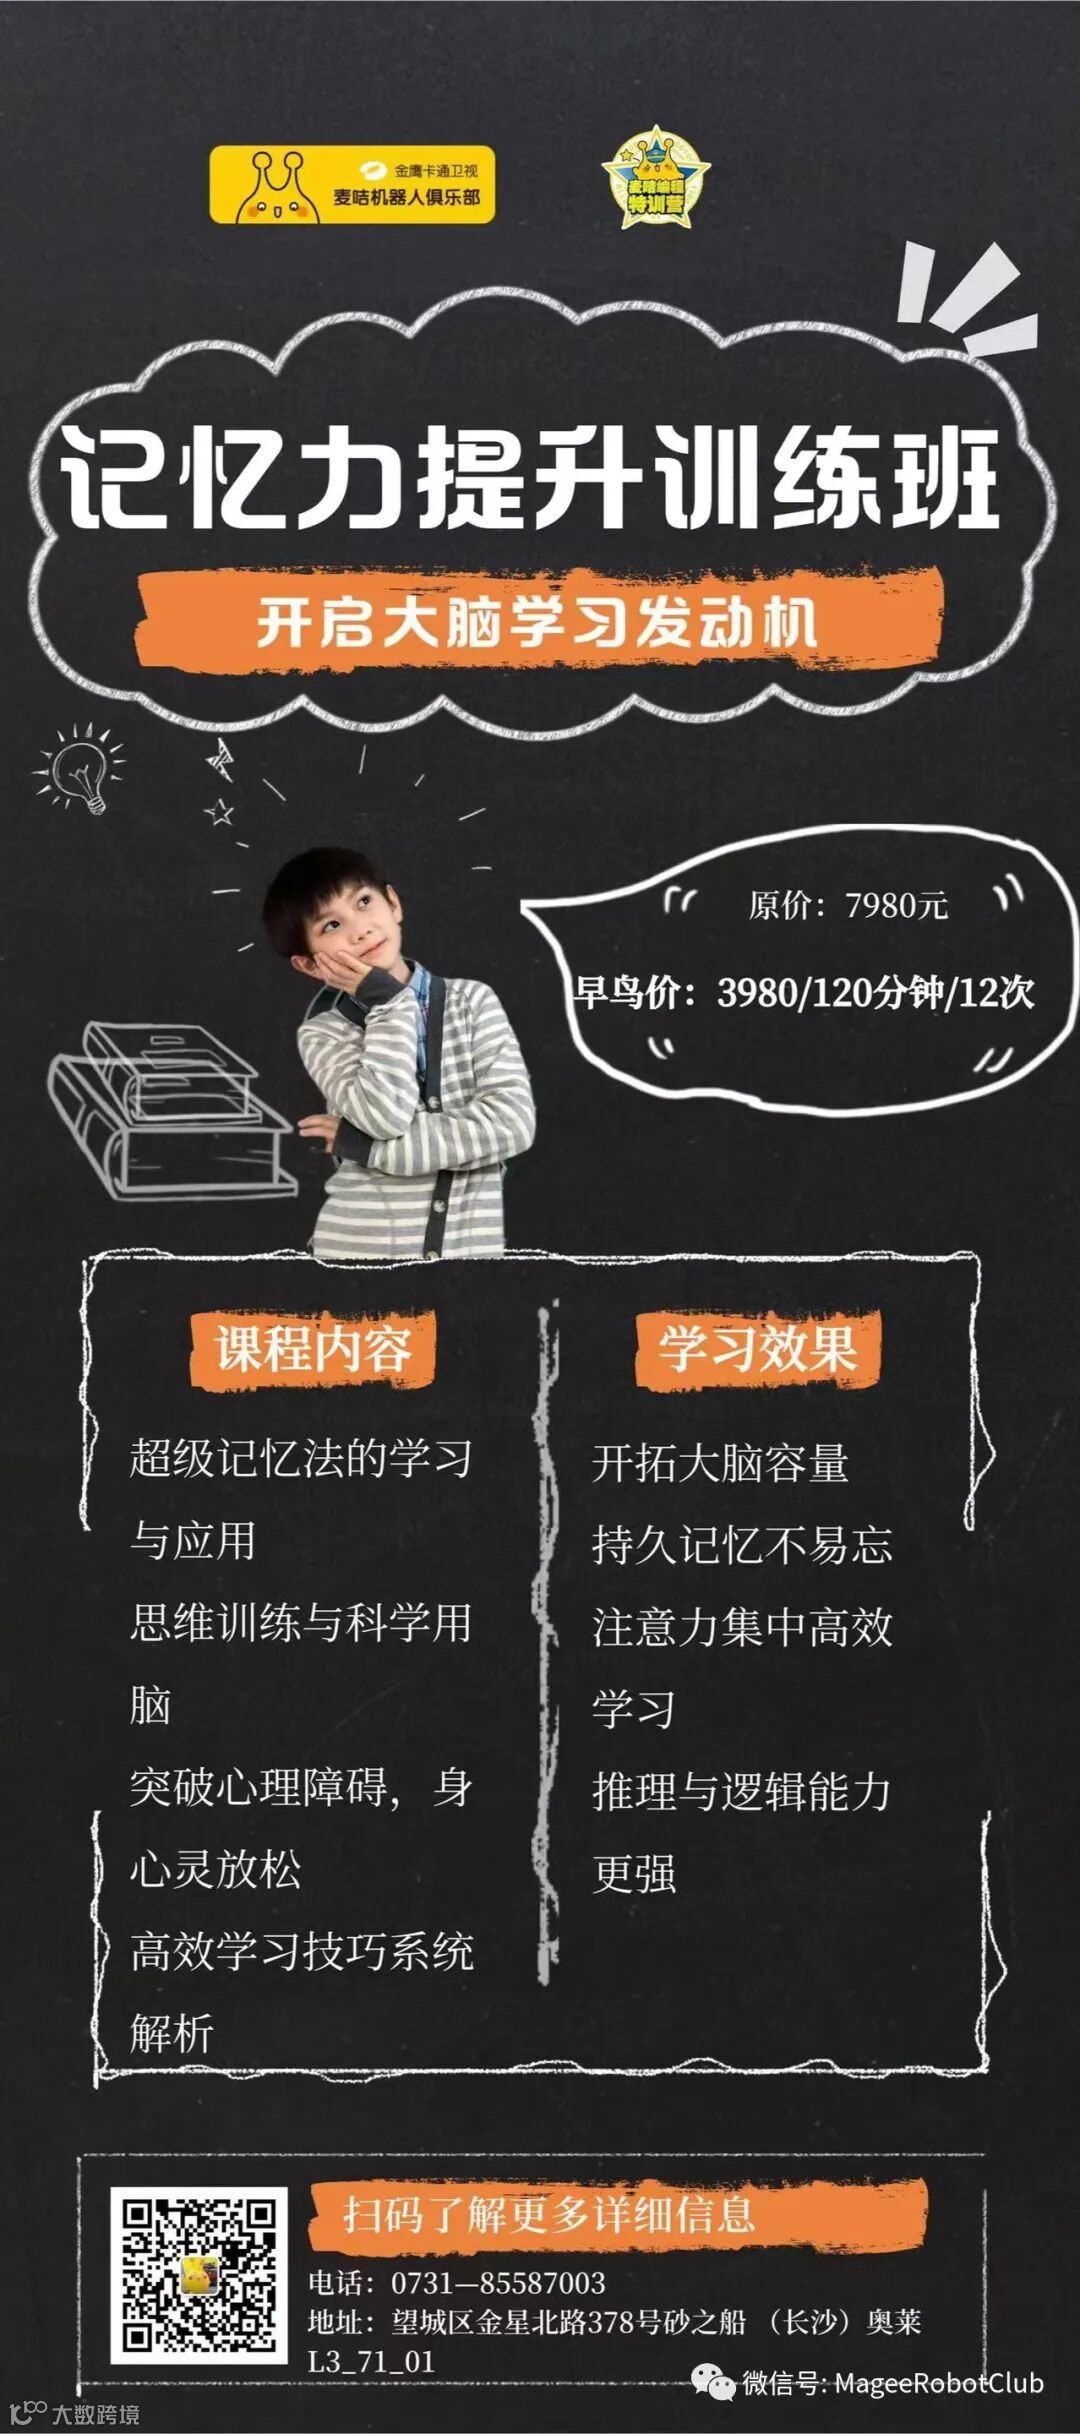 金鹰卡通卫视
麦咭机器人俱乐部
麦咭编程
特训营
记忆力提升训练班
开启大脑学习发动机
原价：7980元
早鸟价：3980/120分钟/12次
课程内容
超级记忆法的学习
与应用
思维训练与科学用
脑
突破心理障碍，身
心灵放松
高效学习技巧系统
解析
学习效果
开拓大脑容量
持久记忆不易忘
注意力集中高效
学习
推理与逻辑能力
更强
扫码了解更多详细信息
电话：0731—85587003
地址：望城区金星北路378号砂之船（长沙）奥莱
L3_71_01
微信号: MageeRobotClub
大数跨境